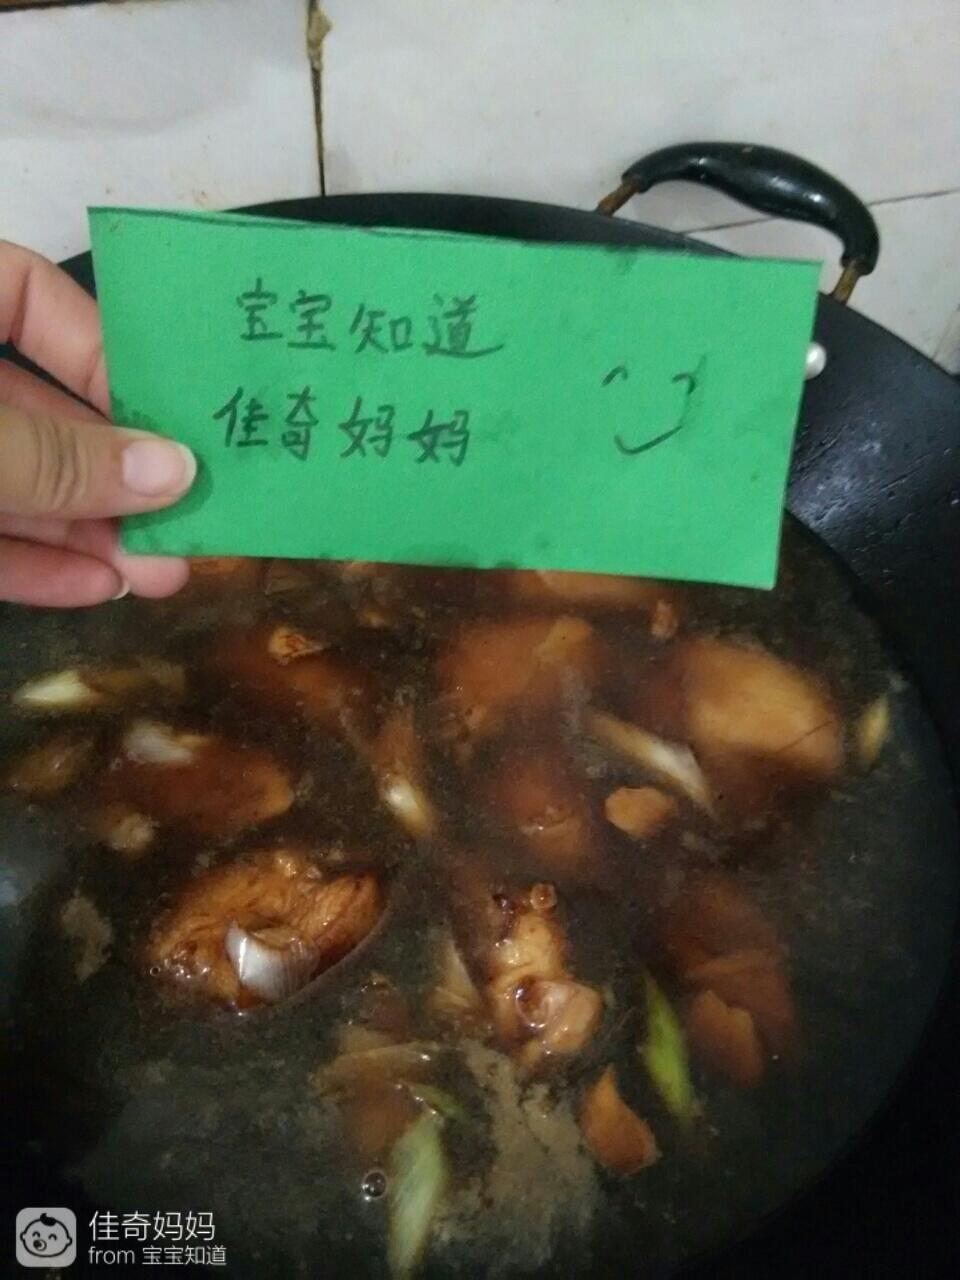 宝宝知道
佳奇妈妈
佳奇妈妈
from 宝宝知道